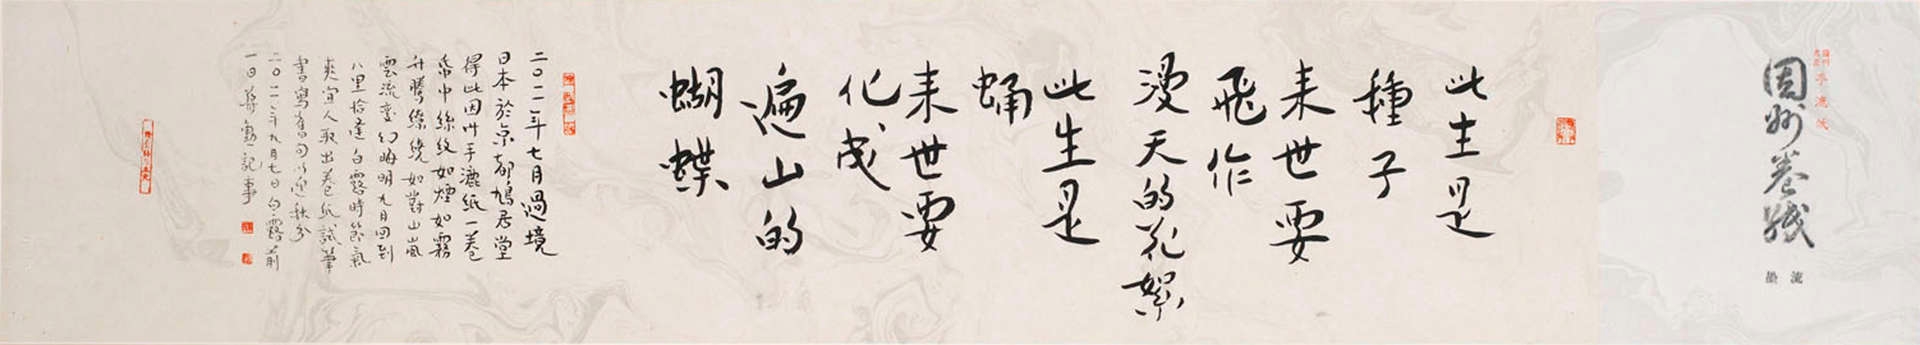 手漉紙
因州卷紙
墨流
此生是
種子
来世要
飛作
漫天的花絮
此生是
蛹
来世要
化成
遍山的
蝴蝶
二〇二二年七月過境
日本於京都鳩居堂
得此因州手漉紙一卷
帋中絲紋如煙如霧
升騰繚繞如對山嵐
雲流變幻晦明九月回到
八里恰逢白露時節氣
爽宜人取出卷紙試筆
書寫舊句以迎秋分
二〇二二年九月七日白露前
一日蔣勳記事